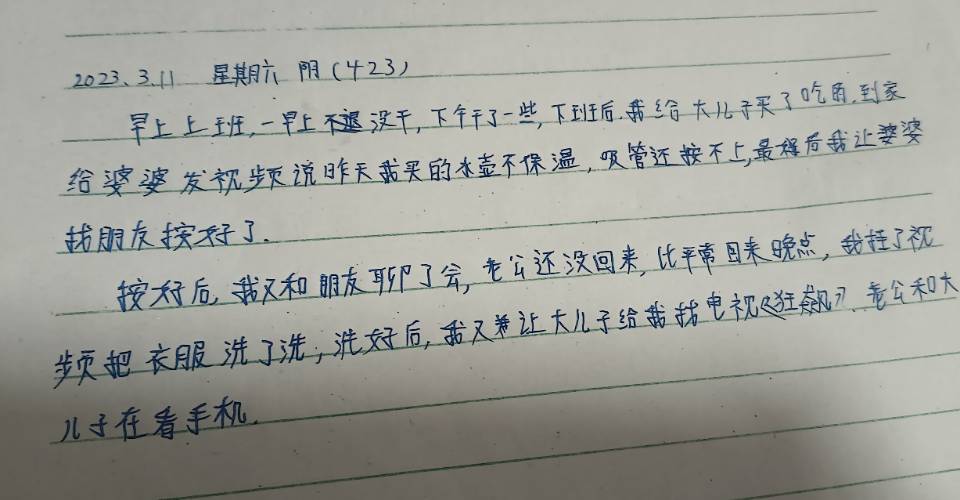 2023.3.11 星期六 阴(423)
早上上班,一早上没干,下午干了一些,下班后,我给大儿子买了吃的,到家
给婆婆发视频说昨天我买的水壶不保温,吸管还按不上,最后我让婆婆
找朋友按好了.
按好后,我又和朋友聊了会,老公还没回来,比平常回来晚点,我挂了视
频把衣服洗了洗,洗好后,我又让大儿子给我找电视《狂飙》,老公和大
儿子在看手机.